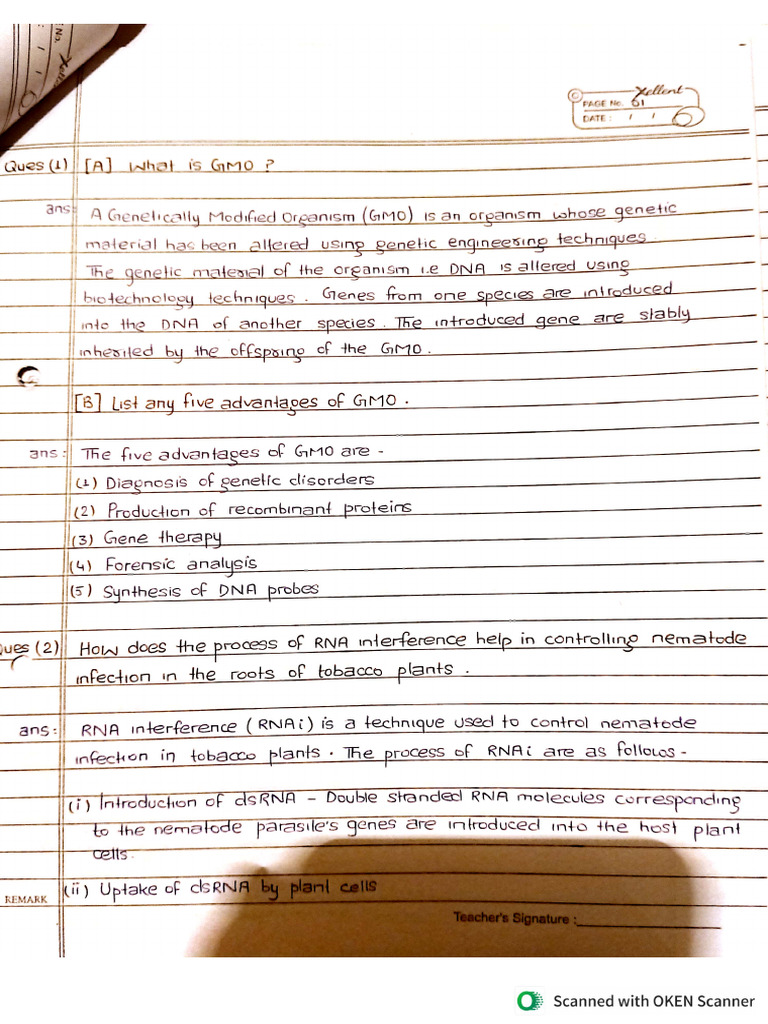 Xellent
PAGE No. 01
DATE: / /
Ques (1) [A] What is GMO ?
ans: A Genetically Modified Organism (GMO) is an organism whose genetic
material has been altered using genetic engineering techniques.
The genetic material of the organism i.e DNA is altered using
biotechnology techniques. Genes from one species are introduced
into the DNA of another species. The introduced gene are stably
inherited by the offspring of the GMO.
[B] List any five advantages of GMO.
ans: The five advantages of GMO are -
(1) Diagnosis of genetic disorders
(2) Production of recombinant proteins
(3) Gene therapy
(4) Forensic analysis
(5) Synthesis of DNA probes
Ques (2) How does the process of RNA interference help in controlling nematode
infection in the roots of tobacco plants.
ans: RNA interference (RNAi) is a technique used to control nematode
infection in tobacco plants. The process of RNAi are as follows -
(i) Introduction of dsRNA - Double standed RNA molecules corresponding
to the nematode parasite's genes are introduced into the host plant
cells.
(ii) Uptake of dsRNA by plant cells
REMARK
Teacher's Signature :
Scanned with OKEN Scanner